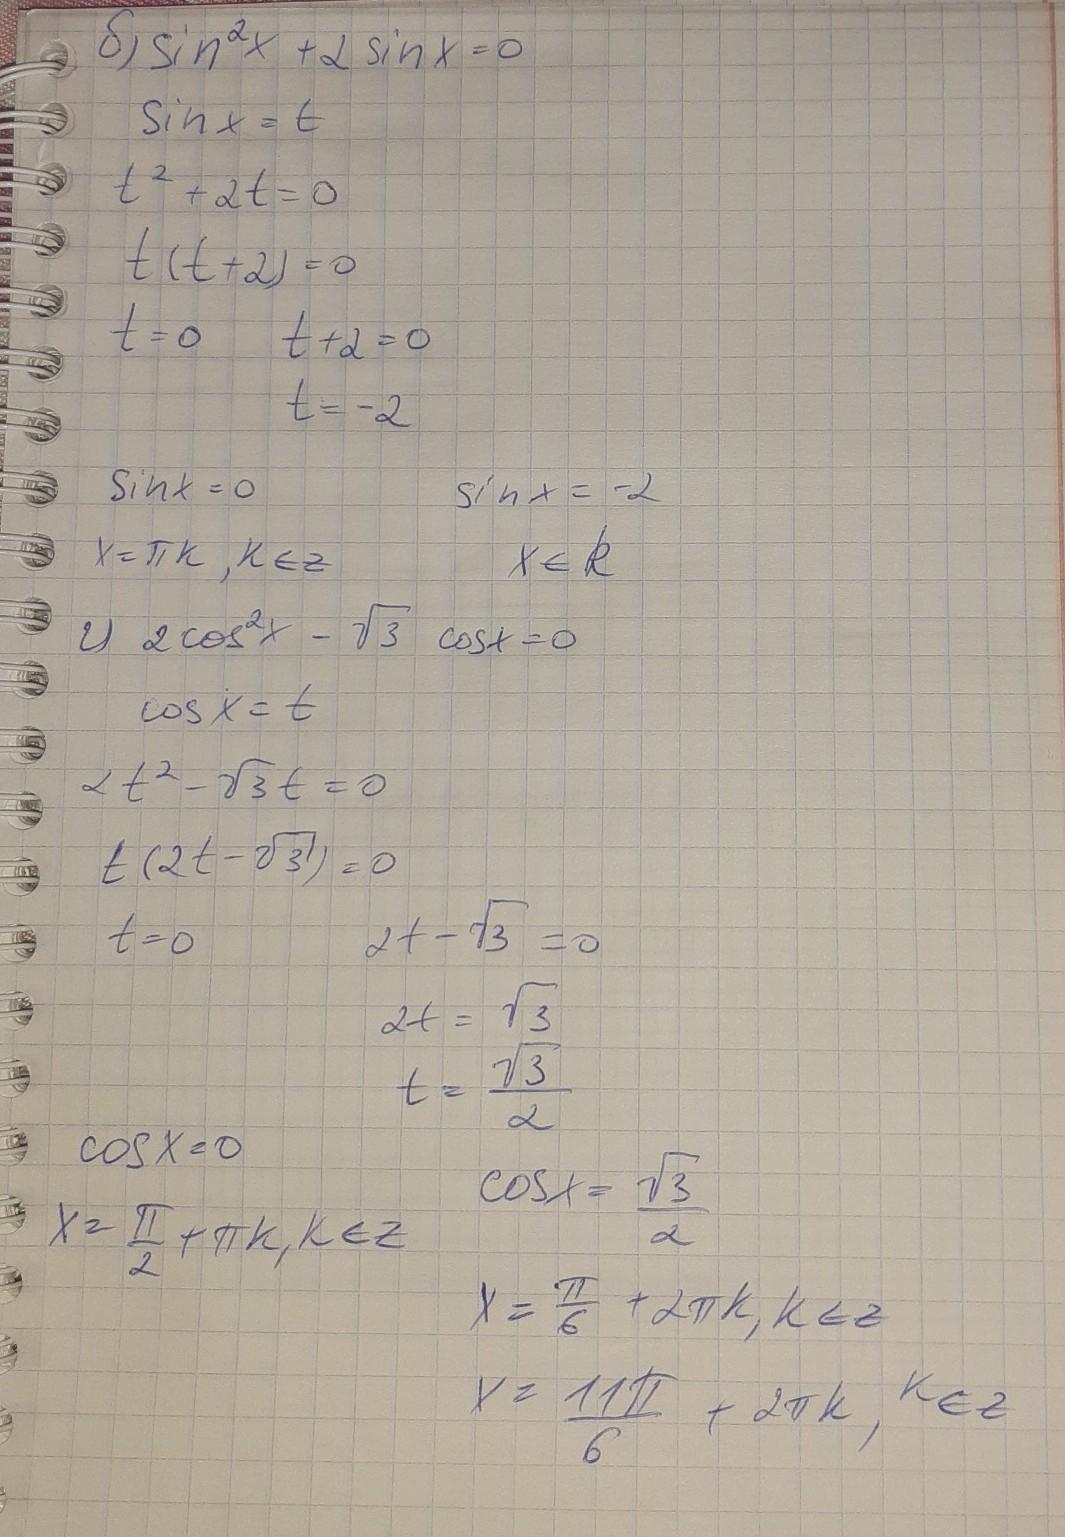 б) sin²x + 2 sinx = 0
sinx = t
t² + 2t = 0
t(t+2) = 0
t = 0    t+2 = 0
t = -2
sinx = 0    sinx = -2
x = πk, k∈z    x∈R
г) 2cos²x - √3 cosx = 0
cosx = t
2t² - √3t = 0
t(2t - √3) = 0
t = 0    2t - √3 = 0
2t = √3
t = √3/2
cosx = 0    cosx = √3/2
x = π/2 + πk, k∈z
x = π/6 + 2πk, k∈z
x = 11π/6 + 2πk, k∈z